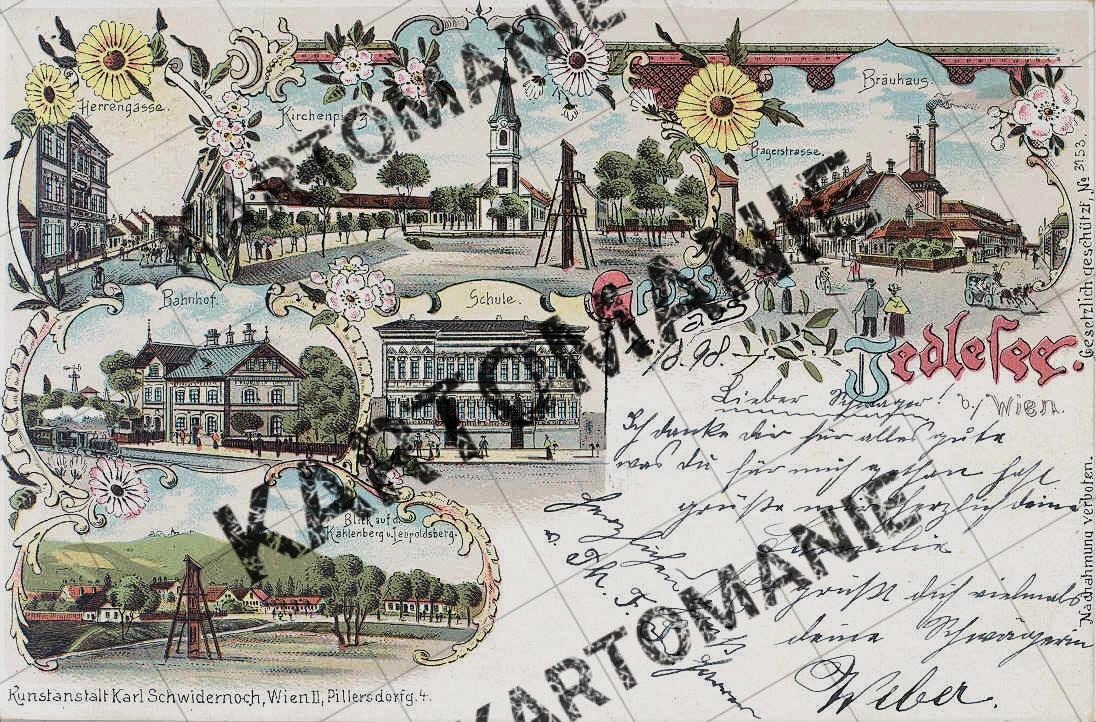 Herrengasse.
Kirchenplatz
Pragerstrasse.
Bräuhaus.
Bahnhof.
Schule.
Gruss
aus
Jedlesee.
b./ Wien.
8. 98.
Lieber Schwager!
Ich danke dir für alles gute
was du für mich gethan hast
grüße herzlich deine
Familie
grüßt dich vielmals
deine Schwägerin
Weber.
Herzlichen
Blick auf d.
Kahlenberg u. Leopoldsberg.
Kunstanstalt Karl Schwidernoch, Wien II, Pillersdorfg. 4.
Gesetzlich geschützt, No 3153.
Nachahmung verboten.
KARTOMANIE
KARTOMANIE
KARTOMANIE
KARTOMANIE